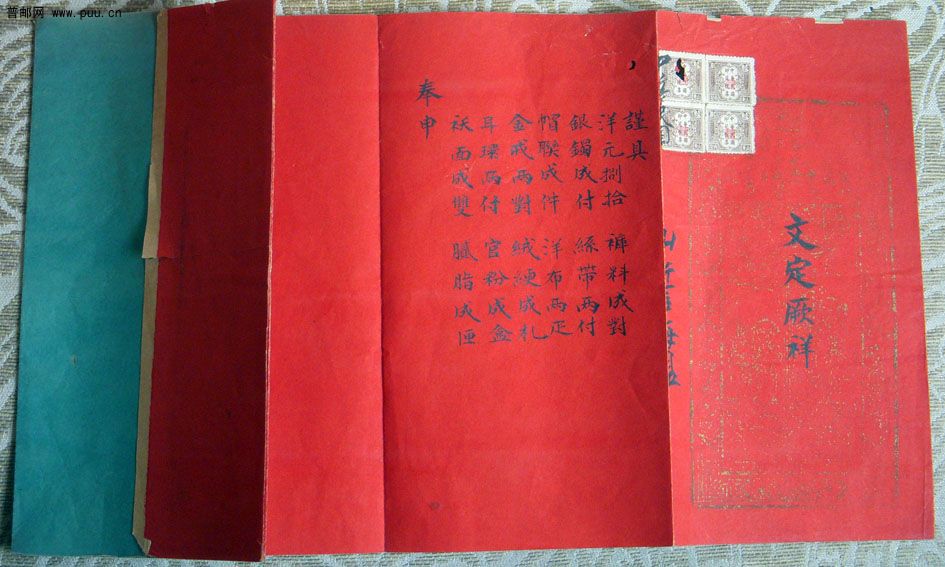 普邮网 www.puu.cn
文定厥祥
謹具
洋元捌拾 褲料成對
銀鐲成付 絲帶兩付
帽聯成件 洋布兩疋
金戒兩對 絨綆成札
耳環兩付 官粉成盒
袄面成雙 膩脂成匣
奉申